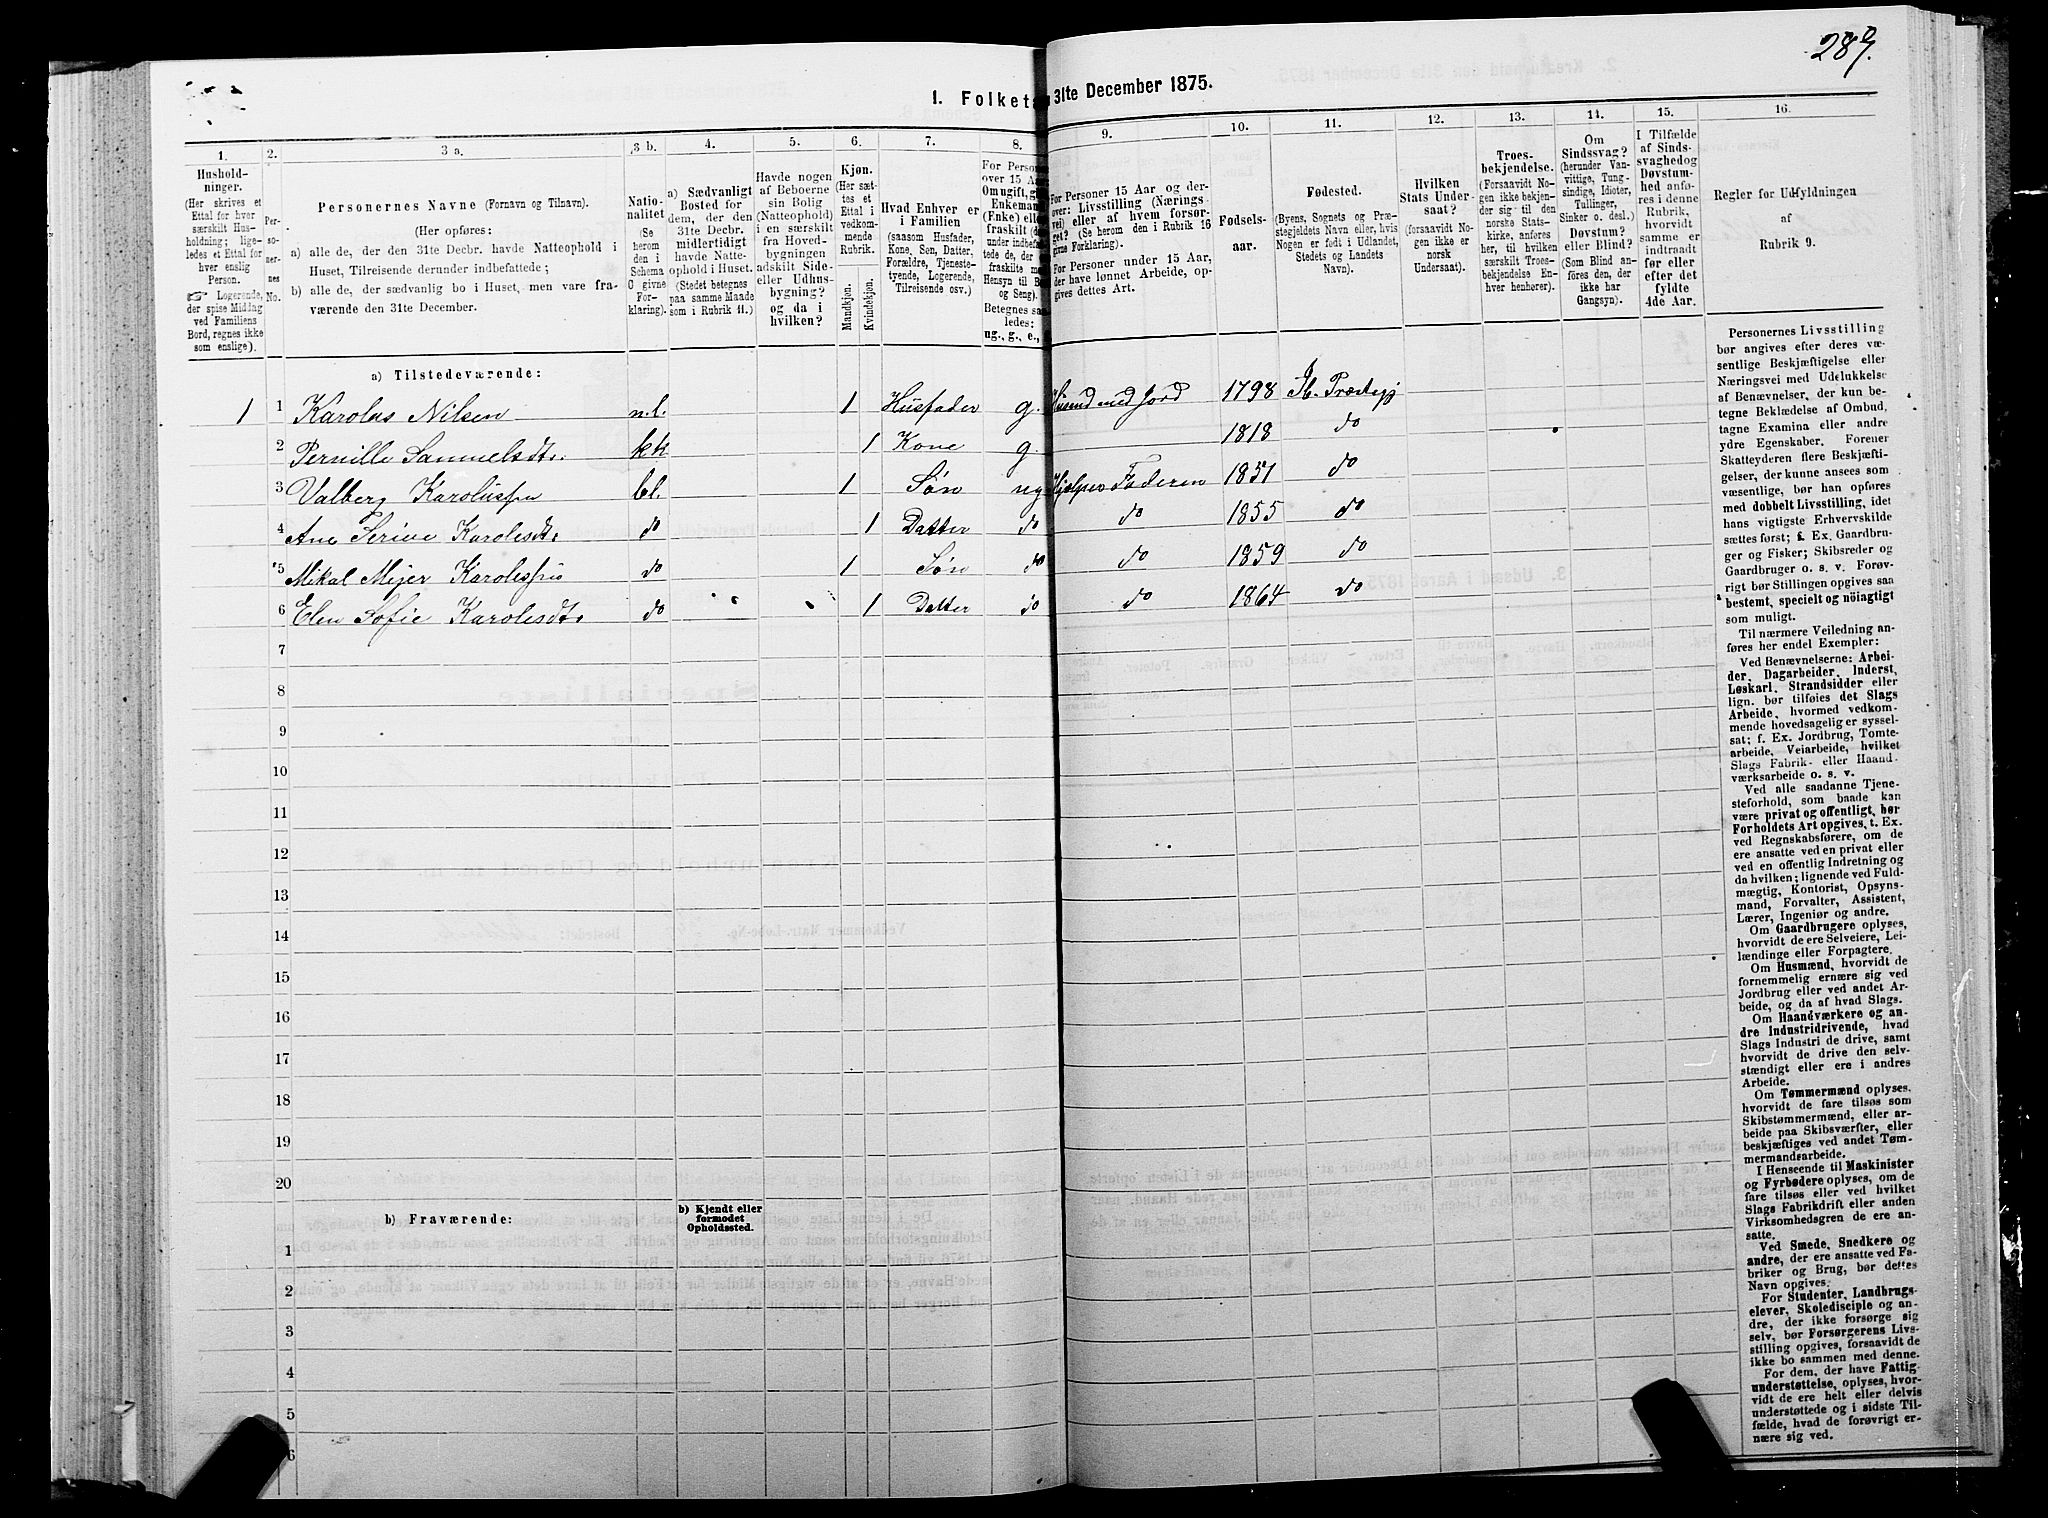 287.
1. Folketæ 31te December 1875.
1.
Hushold-
ninger.
(Her skrives et
Ettal for hver
særskilt Hus-
holdning; lige-
ledes et Ettal for
hver enslig
Person.
☞ Logerende,
der spise Middag
ved Familiens
Bord, regnes ikke
som enslige).
2.
Per-
so-
ner-
nes
No.
3 a.
Personernes Navne (Fornavn og Tilnavn).
(Her opføres:
a) alle de, der den 31te Decbr. havde Natteophold i
Huset, Tilreisende derunder indbefattede;
b) alle de, der sædvanlig bo i Huset, men vare fra-
værende den 31te December.
3 b.
Natio-
nalitet
(Se
herom
den i
Schema
C givne
For-
klaring).
4.
a) Sædvanligt
Bosted for
dem, der den
31te Decbr.
midlertidigt
havde Natte-
ophold i Huset.
(Stedet betegnes
paa samme Maade
som i Rubrik 11.)
5.
Havde nogen
af Beboerne
sin Bolig
(Natteophold)
i en særskilt
fra Hoved-
bygningen
adskilt Side-
eller Udhus-
bygning?
og da i
hvilken?
6.
Kjøn.
(Her sæt-
tes et
Ettal i
vedkom-
mende
Rubrik.
Mandkjøn.
Kvindekjøn.
7.
Hvad Enhver er
i Familien
(saasom Husfader,
Kone, Søn, Datter,
Forældre, Tjeneste-
tyende, Logerende,
Tilreisende osv.)
8.
For Person
over 15 Aa
Om ugift, g
Enkeman
(Enke) ell
fraskilt (d
under indbefat-
tede de, der
fraskilte me
Hensyn til B
og Seng).
Betegnes sa
ledes:
ug., g., e.,
9.
For Personer 15 Aar og der-
over: Livsstilling (Nærings
vei) eller af hvem forsør-
get? (Se herom i Rubrik 16
givne Forklaring).
For Personer under 15 Aar,
der have lønnet Arbeide, op-
gives dettes Art.
10.
Fødsels-
aar.
11.
Fødested.
(Byens, Sognets og Præ-
stegjeldets Navn, eller hvis
Nogen er født i Udlandet,
Stedets og Landets
Navn).
12.
Hvilken
Stats Under-
saat?
(forsaavidt No-
gen ikke er
norsk
Undersaat).
13.
Troes-
bekjendelse.
(Forsaavidt No-
gen ikke bekjen-
der sig til den
norske Stats-
kirke, anføres
her, til hvilken
særskilt Troes-
bekjendelse En-
hver henhører).
14.
Om
Sindssvag?
(herunder Van-
vittige, Tung-
sindige, Idioter,
Tullinger,
Sinker o. desl.)
Døvstum?
eller Blind?
(Som Blind an-
føres den, der
ikke har
Gangsyn).
15.
I Tilfælde
af Sinds-
svaghed og
Døvstum-
hed anfø-
res i denne
Rubrik,
hvorvidt
samme er
indtraadt
før eller
efter det
fyldte
4de Aar.
16.
Regler for Udfyldningen
af
Rubrik 9.
a) Tilstedeværende:
1 1 Karolus Nilsen n.l. 1 Husfader g. Husmd med Jord 1798 Ib. Præstegj
2 Pernille Sammelsdt. kk 1 Kone g. 1818 do
3 Valberg Karolussen bl. 1 Søn ug Hjelper Faderen 1851 do
4 Ane Serive Karolesdt. do 1 Datter do do 1855 do
5 Mikal Mejer Karolessen do 1 Søn do do 1859 do
6 Elen Sofie Karolesdt. do 1 Datter do do 1864 do
7
8
9
10
11
12
13
14
15
16
17
18
19
20
b) Fraværende:
b) Kjendt eller
formodet
Opholdssted.
1
2
3
4
5
6
Personernes Livsstilling
bør angives efter deres væ-
sentlige Beskjæftigelse eller
Næringsvei med Udelukkelse
af Benævnelser, der kun be-
tegne Beklædelse af Ombud,
tagne Examina eller andre
ydre Egenskaber. Forener
Skatteyderen flere Beskjæfti-
gelser, der kunne ansees som
væsentlige, bør han opføres
med dobbelt Livsstilling, idet
hans vigtigste Erhvervskilde
sættes først; f. Ex. Gaardbru-
ger og Fisker; Skibsreder og
Gaardbruger o. s. v. Forøv-
rigt bør Stillingen opgives saa
bestemt, specielt og nøiagtigt
som muligt.
Til nærmere Veiledning an-
føres her endel Exempler:
Ved Benævnelserne: Arbei-
der, Dagarbeider, Inderst,
Løskarl, Strandsidder eller
lign. bør tilføies det Slags
Arbeide, hvormed vedkom-
mende hovedsagelig er syssel-
sat; f. Ex. Jordbrug, Tomte-
arbeide, Veiarbeide, hvilket
Slags Fabrik- eller Haand-
værksarbeide o. s. v.
Ved alle saadanne Tjene-
steforhold, som baade kan
være privat og offentligt, bør
Forholdets Art opgives, t. Ex.
ved Regnskabsførere, om de
ere ansatte ved en privat eller
ved en offentlig Indretning og
da hvilken; lignende ved Fuld-
mægtig, Kontorist, Opsyns-
mand, Forvalter, Assistent,
Lærer, Ingeniør og andre.
Om Gaardbrugere oplyses,
hvorvidt de ere Selveiere, Lei-
lændinge eller Forpagtere.
Om Husmænd, hvorvidt de
fornemmelig ernære sig ved
Jordbrug eller ved andet Ar-
beide, og da af hvad Slags.
Om Haandværkere og an-
dre Industridrivende, hvad
Slags Industri de drive, samt
hvorvidt de drive den selv-
stændigt eller ere i andres
Arbeide.
Om Tømmermænd oplyses,
hvorvidt de fare tilsøs som
Skibstømmermænd, eller ar-
beide paa Skibsværfter, eller
beskjæftiges ved andet Tøm-
mermandsarbeide.
I Henseende til Maskinister
og Fyrbødere oplyses, om de
fare tilsøs eller ved hvilket
Slags Fabrikdrift eller anden
Virksomhedsgren de ere an-
satte.
Ved Smede, Snedkere og
andre, der ere ansatte ved Fa-
briker og Brug, bør dettes
Navn opgives.
For Studenter, Landbrugs-
elever, Skoledisciple og an-
dre, der ikke forsørge sig
selv, bør Forsørgerens Livs-
stilling opgives, forsaavidt de
ikke bo sammen med denne.
For dem, der have Fattig-
understøttelse, oplyses, hvor-
vidt de ere helt eller delvis
understøttede og i sidste Til-
fælde, hvad de forøvrigt er-
nære sig ved.